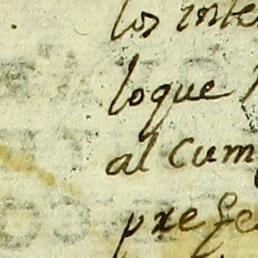 los inte
loque
al cum
prese